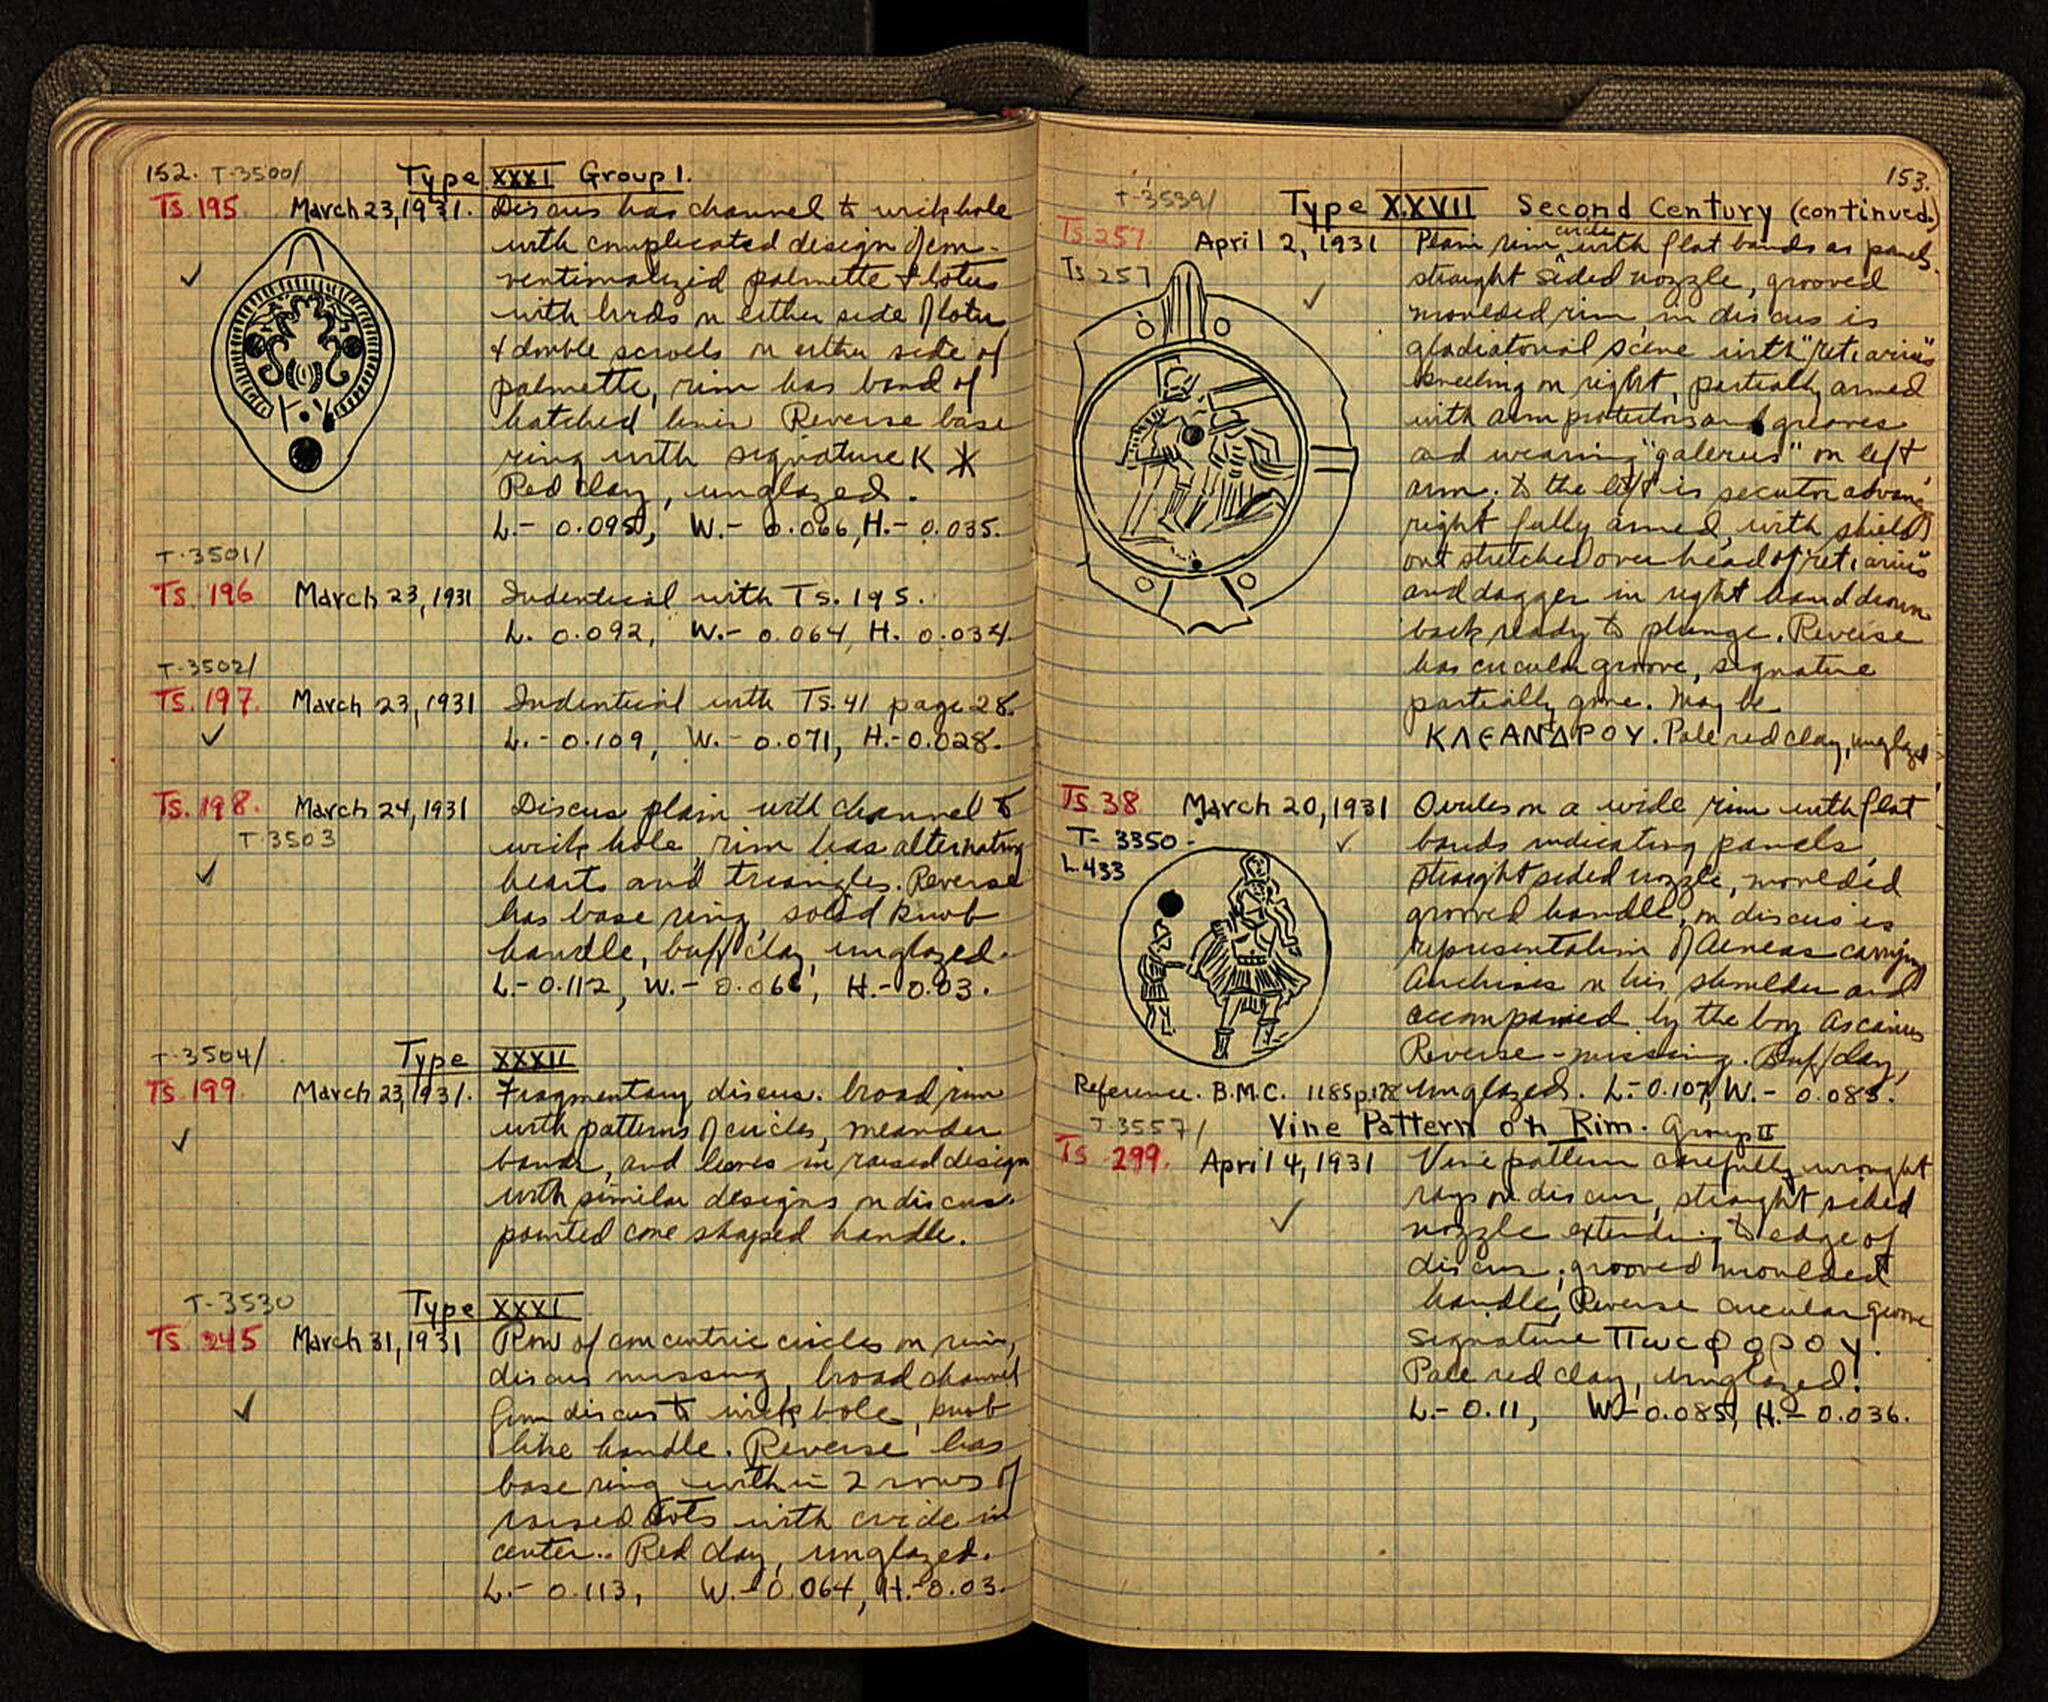 152. T-3500/ Type XXXI Group 1.
Ts. 195 March 23, 1931. Discus has channel to wickhole
with complicated design of con-
ventionalized palmette & lotus
with birds on either side of lotus
& double scrolls on either side of
palmette, rim has band of
hatched lines Reverse base
ring with signature K Ж
Red clay, unglazed.
L.- 0.095, W.- 0.066, H.- 0.035.
T-3501/
Ts. 196 March 23, 1931 Indentical with Ts. 195.
L. 0.092, W.- 0.064, H. 0.034.
T-3502/
Ts. 197. March 23, 1931 Indentical with Ts. 41 page 28.
L.- 0.109, W.- 0.071, H.- 0.028.
Ts. 198. March 24, 1931 Discus plain with channel to
T-3503 wick hole, rim has alternating
hearts and triangles. Reverse
has base ring, solid knob
handle, buff clay, unglazed.
L.- 0.112, W.- 0.066, H.- 0.03.
T-3504/ Type XXXII
Ts. 199. March 23, 1931. Fragmentary discus. broad rim
with patterns of circles, meander
bands, and leaves in raised design
with similar designs on discus.
pointed cone shaped handle.
T-3530 Type XXXI
Ts. 245 March 31, 1931 Row of concentric circles on rim,
discus missing, broad channel
from discus to wick hole, knob
like handle. Reverse has
base ring within 2 rows of
raised dots with circle in
center.. Red clay, unglazed.
L.- 0.113, W.- 0.064, H.- 0.03.
153.
T-3539/ Type XXVII Second Century (continued.)
Ts. 257. April 2, 1931 Plain rim circle with flat bands as panels.
Ts 257 straight sided nozzle, grooved
moulded rim, in discus is
gladiatorial scene with "retiarius"
kneeling on right, partially armed
with arm protectors and greaves
and wearing "galerus" on left
arm; to the left is secutor advanc
right fully armed, with shield
out stretched over head of "retiarius"
and dagger in right hand drawn
back ready to plunge. Reverse
has circular groove, signature
partially gone. May be
ΚΛΕΑΝΔΡΟΥ. Pale red clay, unglazed
Ts. 38 March 20, 1931 Ovules on a wide rim with flat
T- 3350 - bands indicating panels,
L. 433 straight sided nozzle, moulded
grooved handle, on discus is
representation of Aeneas carrying
Anchises on his shoulder and
accompanied by the boy Ascanius
Reverse - missing. Buff clay,
Reference. B.M.C. 1185 p.178 unglazed. L.- 0.107, W.- 0.083.
T-3557/ Vine Pattern on Rim. Group II
Ts 299. April 4, 1931 Vine pattern carefully wrought
rays on discus, straight sided
nozzle extending to edge of
discus; grooved moulded
handle, Reverse circular groove
signature Πωϲφοροy.
Pale red clay, unglazed.
L.- 0.11, W.- 0.085, H.- 0.036.